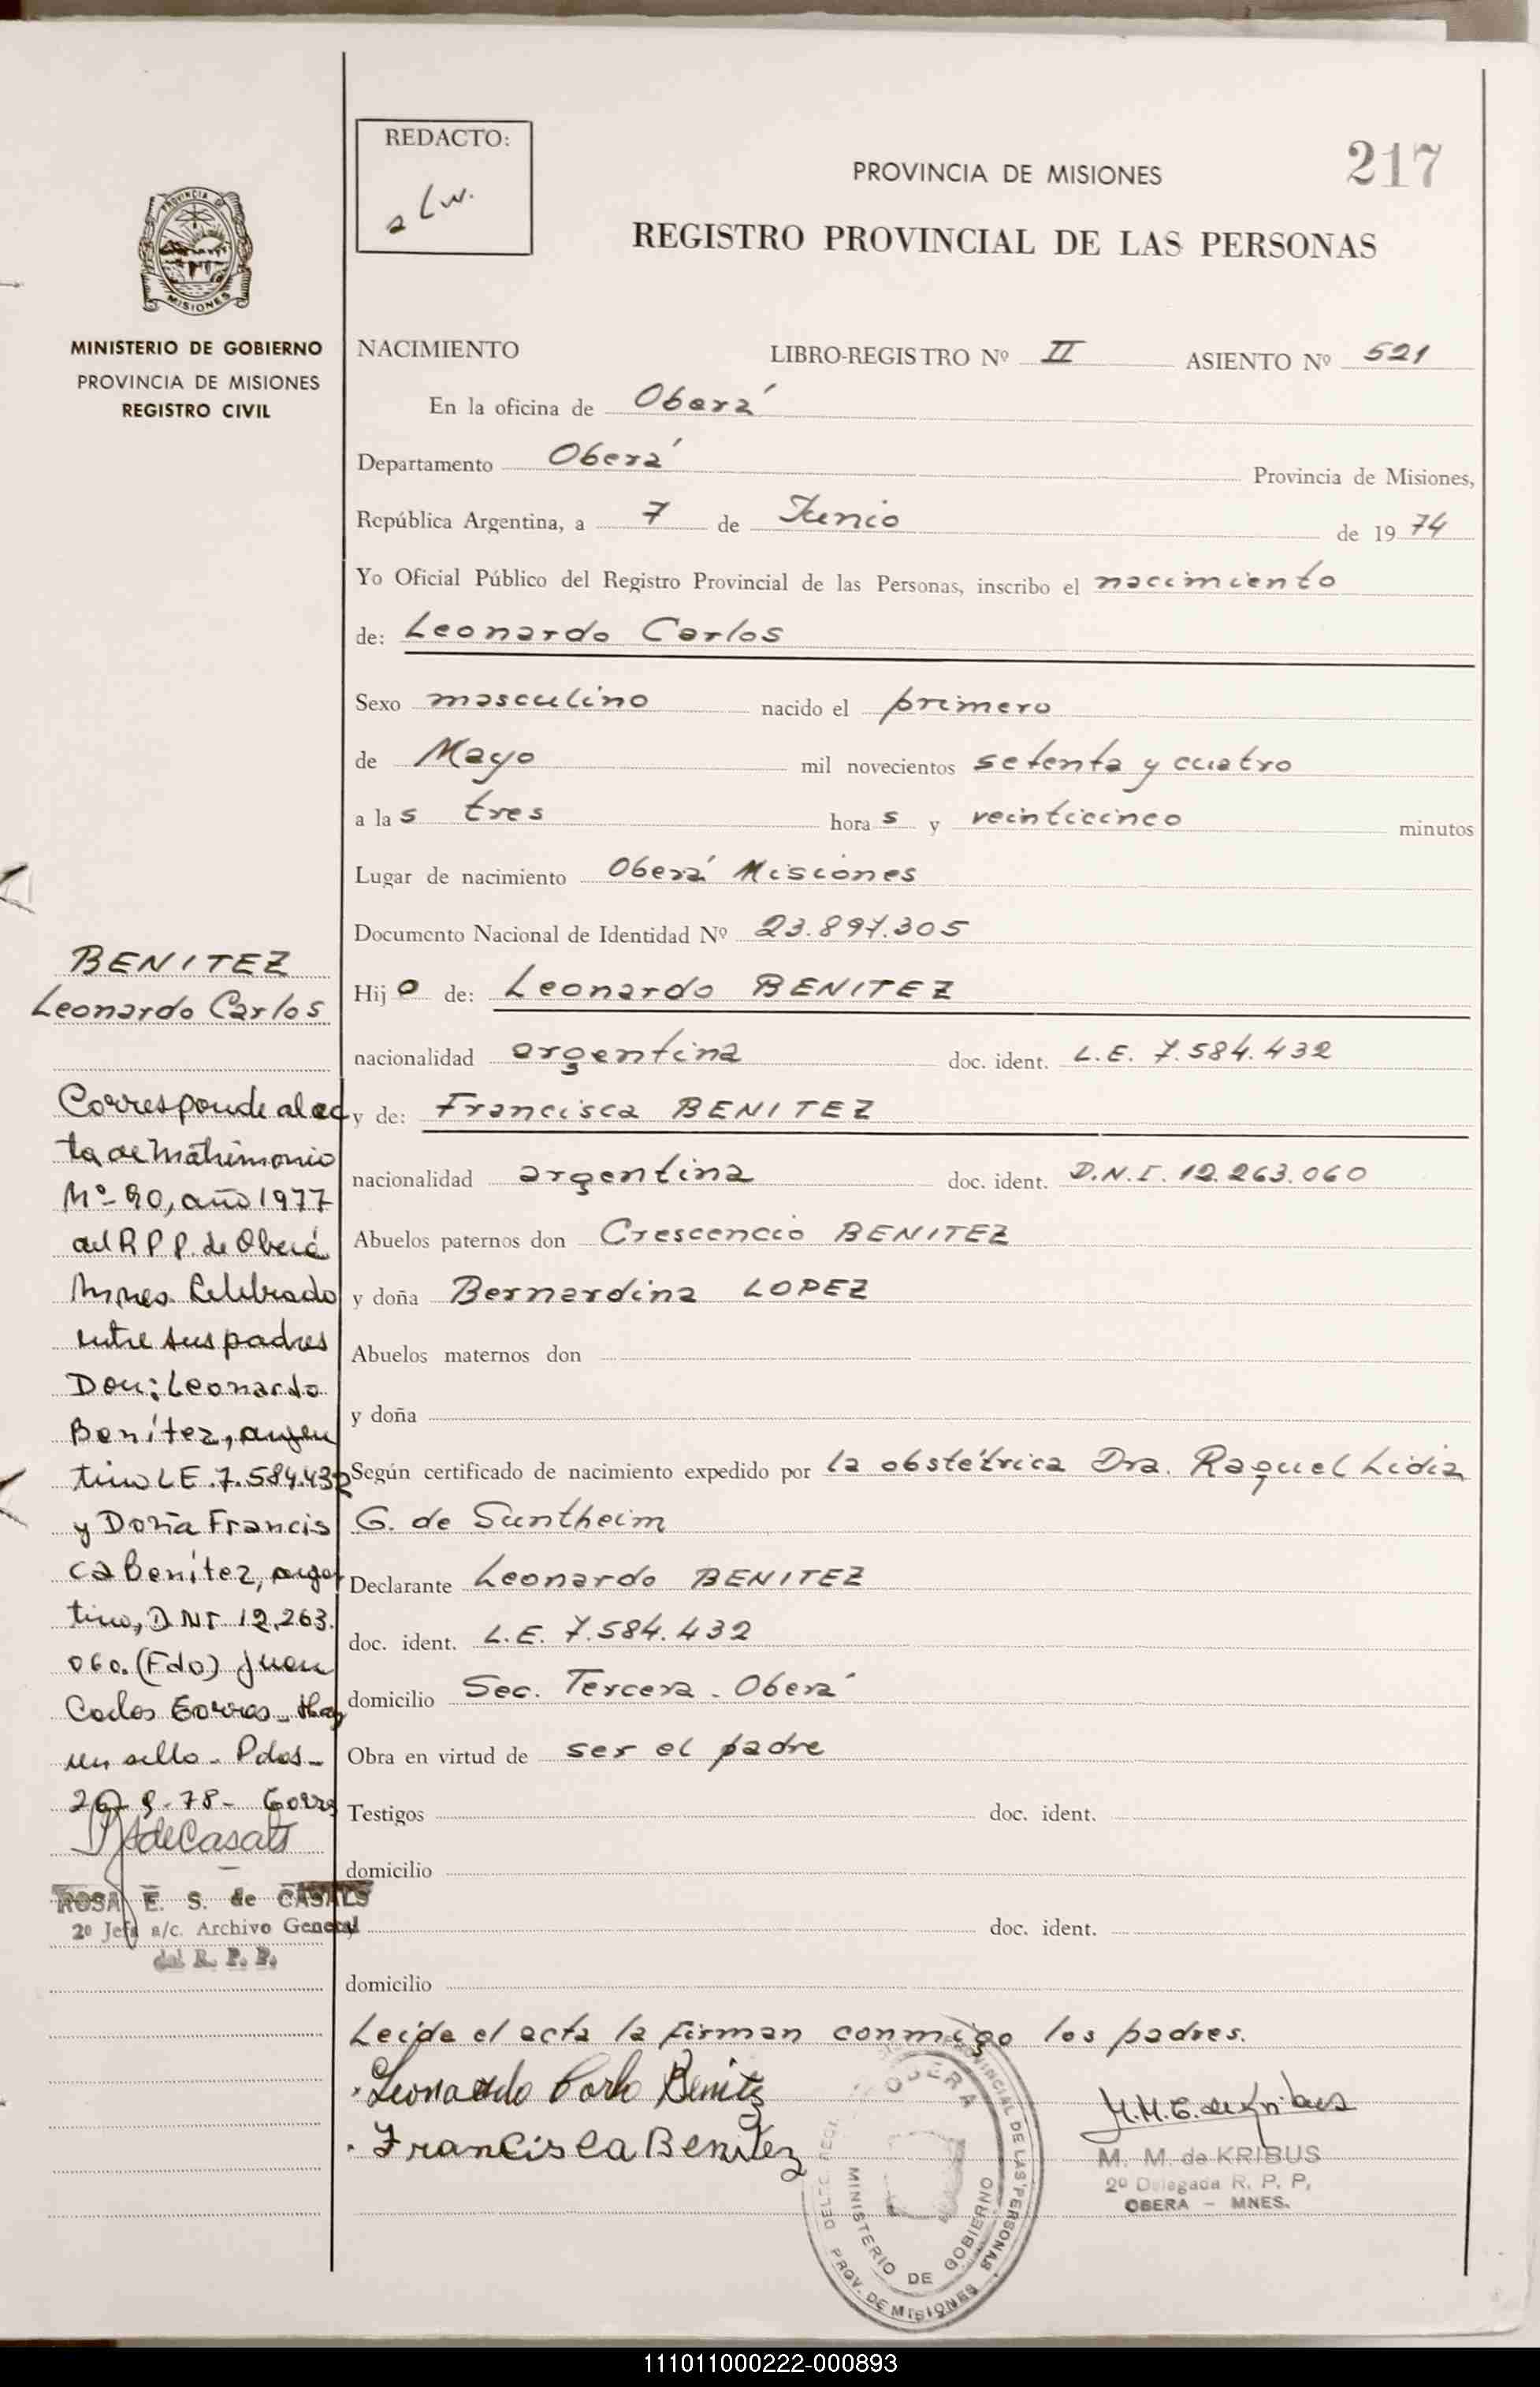 REDACTO:
PROVINCIA DE MISIONES
217
REGISTRO PROVINCIAL DE LAS PERSONAS
PROVINCIA DE
MISIONES
MINISTERIO DE GOBIERNO
PROVINCIA DE MISIONES
REGISTRO CIVIL
NACIMIENTO LIBRO-REGISTRO Nº II ASIENTO Nº 521
En la oficina de Oberá
Departamento Oberá Provincia de Misiones,
República Argentina, a 7 de Junio de 1974
Yo Oficial Público del Registro Provincial de las Personas, inscribo el nacimiento
de: Leonardo Carlos
Sexo masculino nacido el primero
de Mayo mil novecientos setenta y cuatro
a las tres horas y veinticinco minutos
Lugar de nacimiento Oberá Misiones
Documento Nacional de Identidad Nº 23.897.305
Hijo de: Leonardo BENITEZ
nacionalidad argentina doc. ident. L.E. 7.584.432
y de: Francisca BENITEZ
nacionalidad argentina doc. ident. D.N.I. 12.263.060
Abuelos paternos don Crescencio BENITEZ
y doña Bernardina LOPEZ
Abuelos maternos don
y doña
Según certificado de nacimiento expedido por la obstétrica Dra. Raquel Lidia
G. de Suntheim
Declarante Leonardo BENITEZ
doc. ident. L.E. 7.584.432
domicilio Sec. Tercera - Oberá
Obra en virtud de ser el padre
Testigos doc. ident.
domicilio
doc. ident.
domicilio
Leída el acta la firman conmigo los padres.
Leonardo Carlo Benitz
Francisca Benitez
M.M.E. de Kribus
M. M. de KRIBUS
2º Delegada R. P. P.
OBERA - MNES.
OBERA
PROVINCIAL DE LAS PERSONAS
MINISTERIO DE GOBIERNO
PROV. DE MISIONES
BENITEZ
Leonardo Carlos
Corresponde al ac
ta de Matrimonio
Nº 90, año 1977
del R P P. de Oberá
Mnes. Celebrado
entre sus padres
Don: Leonardo
Benítez, argen
tino LE. 7.584.432
y Doña Francis
ca Benítez, argen
tina, D NI 12.263.
060. (Fdo) Juan
Carlos Gorras - Hay
un sello - Pdas -
26-9-78 -
ROSA E. S. de CASALS
2º Jefa a/c. Archivo General
del R. P. P.
111011000222-000893